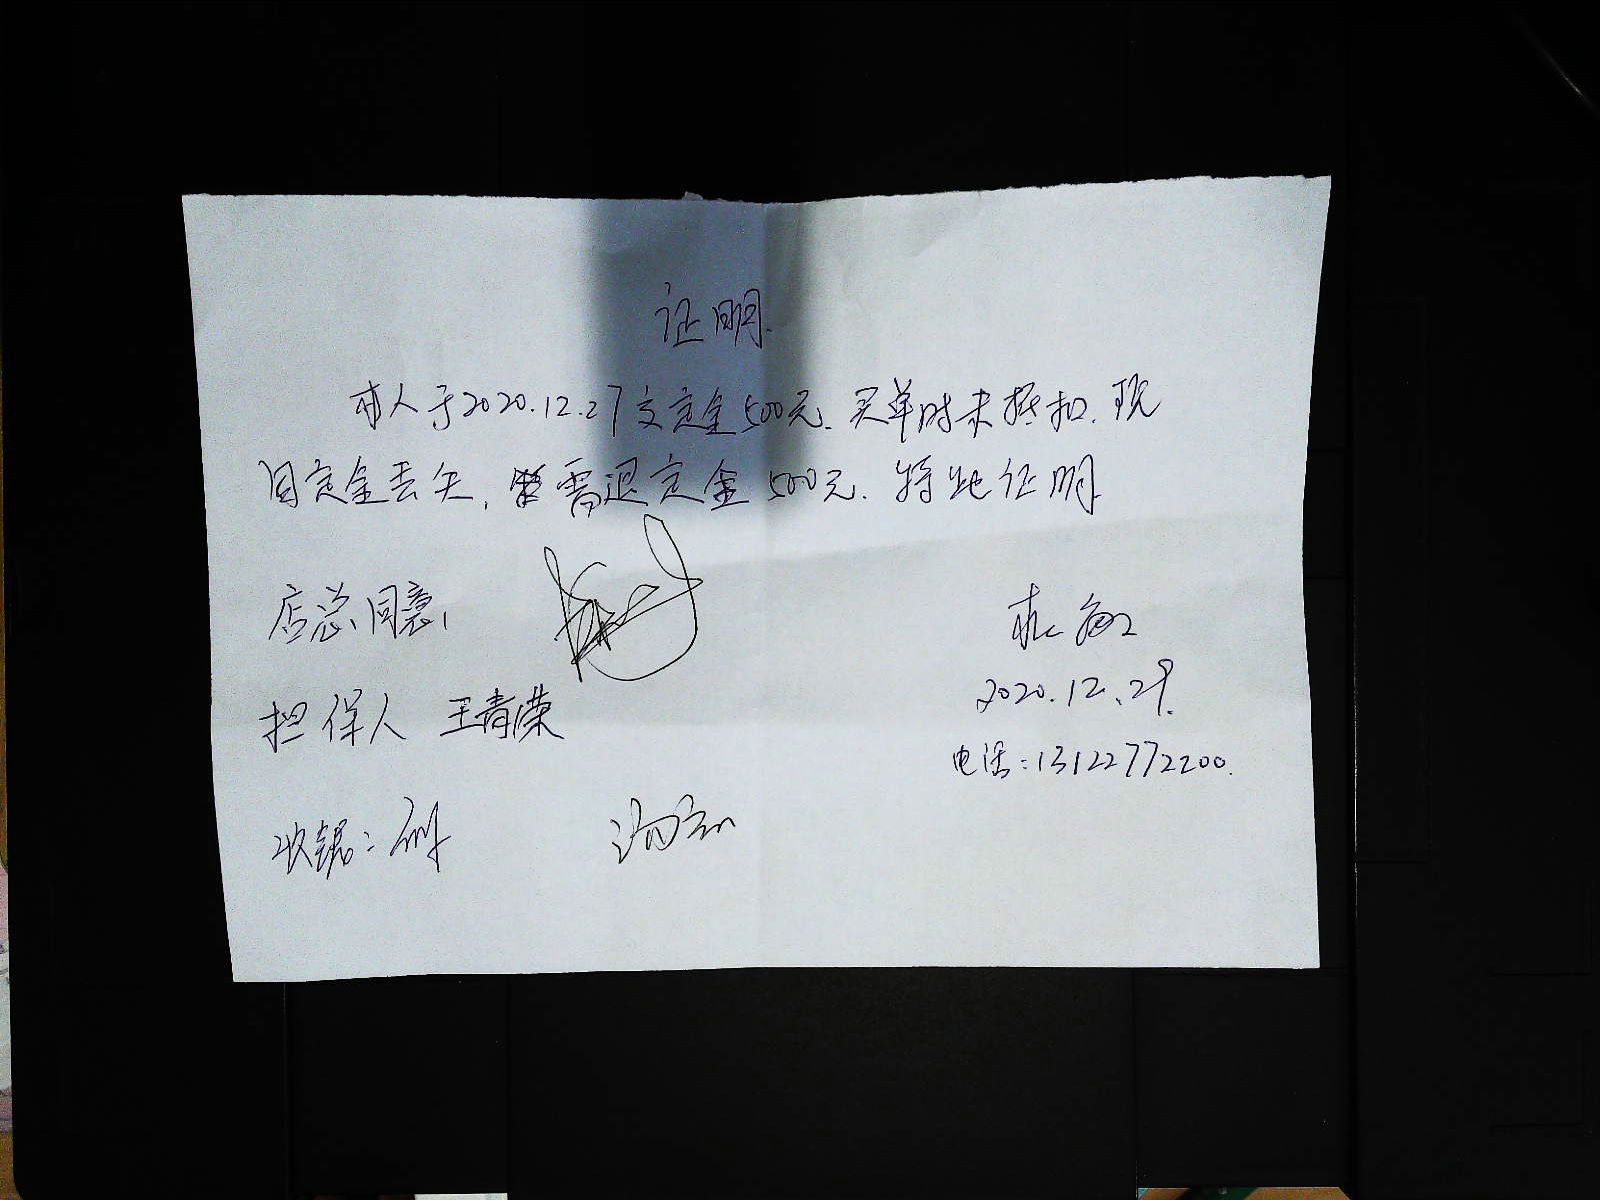 证明.
本人于2020.12.27交定金500元.买单时未抵扣.现
因定金丢失,需退定金500元.特此证明.
店总同意、
担保人 王青荣
敏
2020.12.29.
电话:13122772200.
收银: